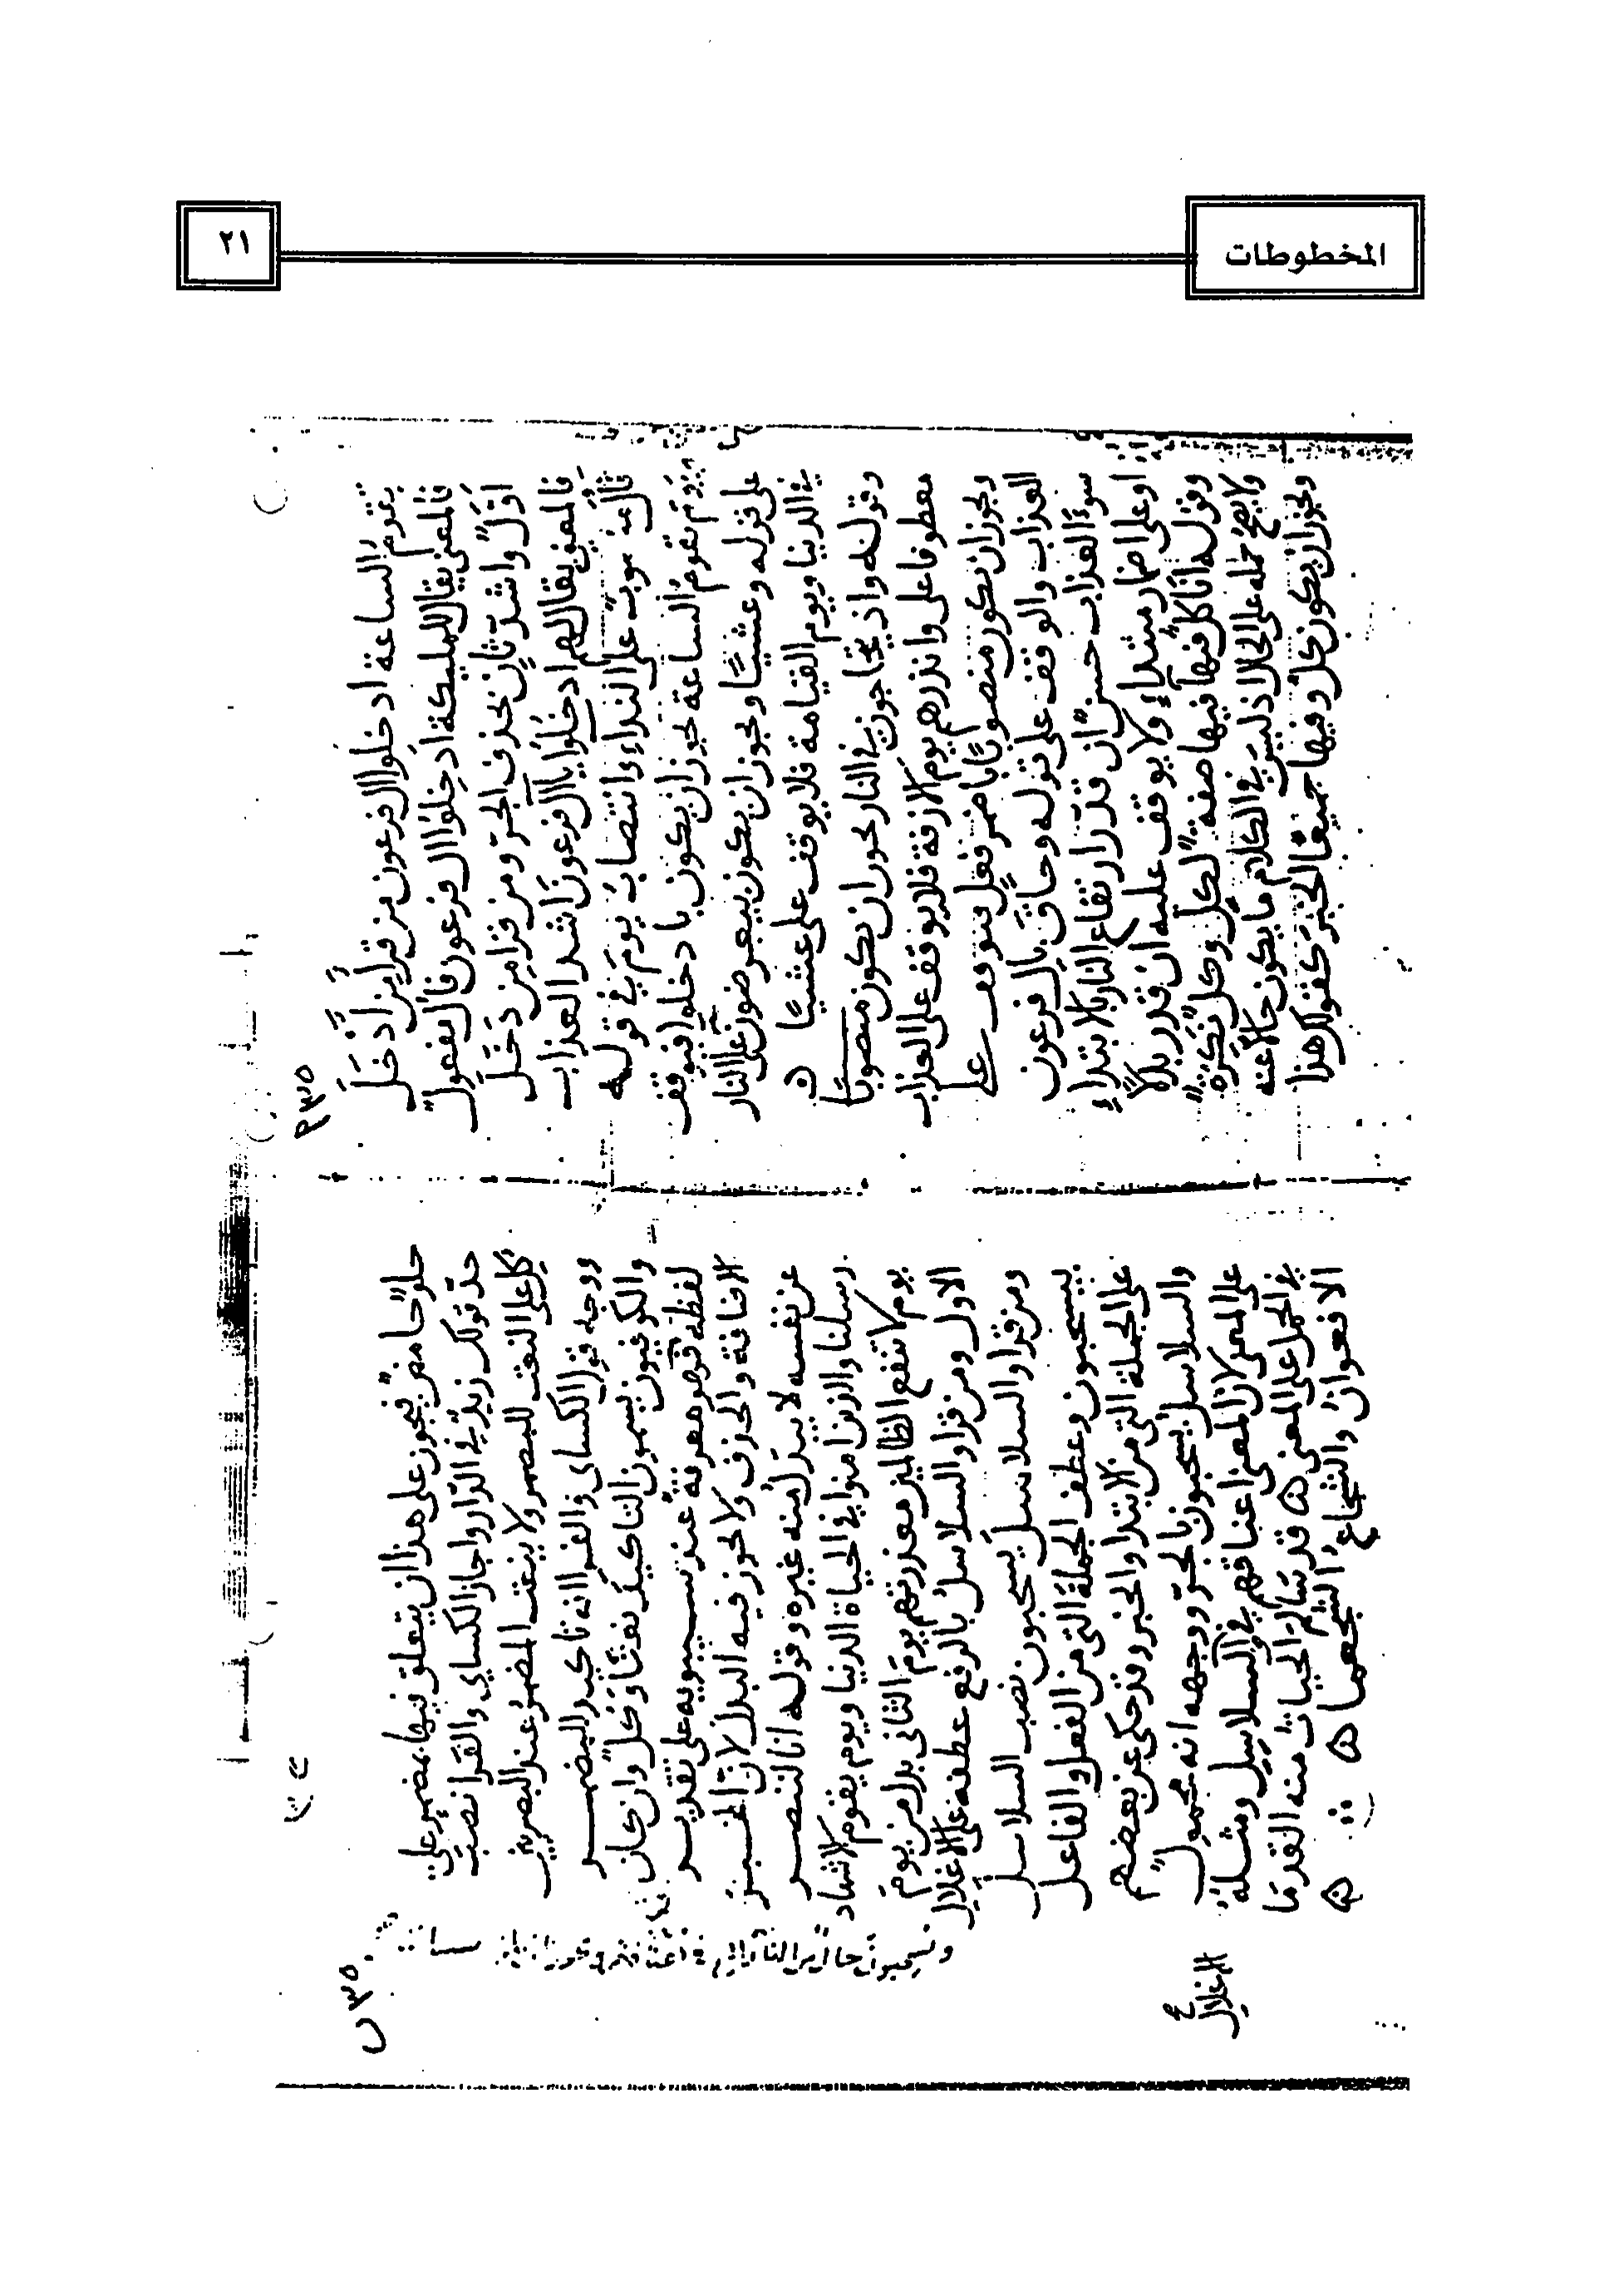 المخطوطات
٢١
تقوم الساعة ادخلوا ال فرعون من قرا من ادخل
فالمعنى يقال للمليكة ادخلوا ال فرعون فال مفعول
اول واشد ثان بحذف الجر ومن قرا من دخل
فالمعنى يقال لهم ادخلوا يا آل فرعون اشد العذاب
على النداء وانتصاب يوم في قوله
تقوم الساعة يجوز ان يكون بادخلوا فيوقف
على قوله وعشيا ويجوز ان يكون بيعرضون على النار
في الدنيا ويوم القيامة فلا يوقف على عشيا ه
وقوله واذ يتحاجون في النار يجوز ان يكون منصوبا
معطوفا على وانذرهم يوم الازفة فلا يوقف على العذاب
ويجوز ان يكون منصوبا باضمر فعل فتوقف على
العذاب والوقف على قوله وحاق بال فرعون
سوء العذاب حسن ان قدر ارتفاع النار بالابتداء
او على اضمار مبتداء ولا يوقف عليه ان قدر بدلا
وقوله انا كل فيها فيها صفة لكل وكل نكرة
ولا يصح حمله على الحال اذ ليس في الكلام ما يكون حالا عنه
ويجوز ان يكون كل وفيها جميعا الخبر كقولك هذا
٣٥
حلو حامض فيجوز على هذا ان يتعلق فيها بمضمر على
حد قولك زيد في الدار واجاز الكساي والفرا نصب
كل على النعت للمضمر ولا ينعت المضمر عند البصريين
ووجه قول الكساي والفرا انه تاكيد للمضمر
والكوفيون يسمون التاكيد نعتا وكل وان كان
لفظه نكره فهو معرفة عند سيبويه على تقدير
الاضافة والحذف ولا يجوز فيه البدل لان المخبر
عن نفسه لا يبدل منه غيره وقوله انا لننصر
رسلنا والذين امنوا في الحياة الدنيا ويوم يقوم الاشهاد
يوم لا تنفع الظالمين معذرتهم يوم الثاني بدل من يوم
الاول ومن قرا والسلاسل بالرفع عطفه على الاغلال
ومن قرا والسلاسل يسحبون نصب السلاسل
بيسحبون وعطف الجملة التي من الفعل والفاعل
على الجملة التي من الابتدا والخبر وقد حكى عن بعضهم
والسلاسل يسحبون بالجر ووجهه انه محمول
على المعنى لان المعنى اعناقهم في السلاسيل ومثله
في الحمل على المعنى ه قد سالم الحيات منه القدما
الافعوان والشجاع الشجعما ه ه
الاغلال
٣٥